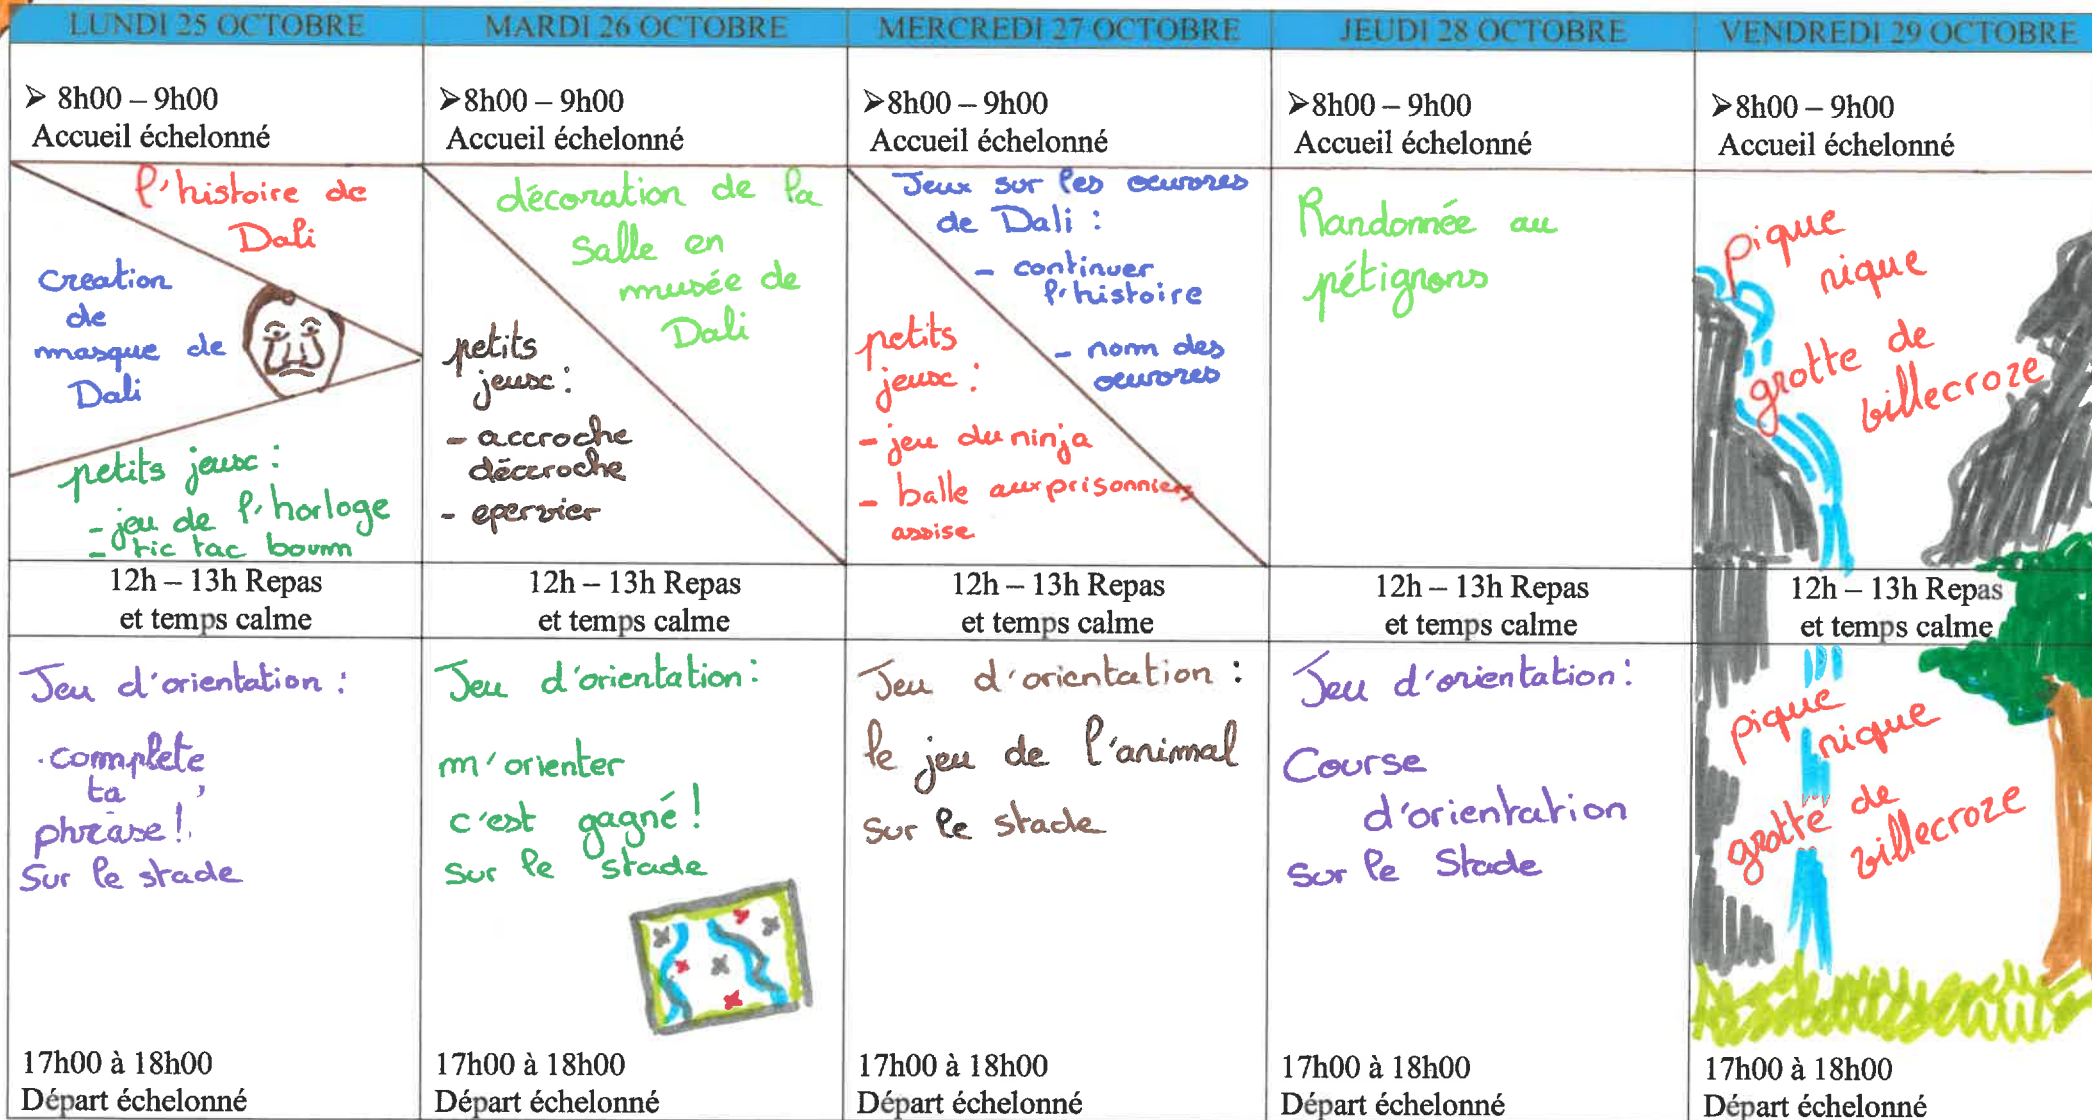 LUNDI 25 OCTOBRE
MARDI 26 OCTOBRE
MERCREDI 27 OCTOBRE
JEUDI 28 OCTOBRE
VENDREDI 29 OCTOBRE
➤ 8h00 – 9h00
Accueil échelonné
➤8h00 – 9h00
Accueil échelonné
➤8h00 – 9h00
Accueil échelonné
➤8h00 – 9h00
Accueil échelonné
➤8h00 – 9h00
Accueil échelonné
l'histoire de
Dali
creation
de
masque de
Dali
petits jeux :
- jeu de l'horloge
- tic tac boum
décoration de la
salle en
musée de
Dali
petits
jeux :
- accroche
décroche
- epervier
Jeux sur les oeuvres
de Dali :
- continuer
l'histoire
- nom des
oeuvres
petits
jeux :
- jeu du ninja
- balle aux prisonniers
assise
Randonnée au
pétignons
pique
nique
grotte de
villecroze
12h – 13h Repas
et temps calme
12h – 13h Repas
et temps calme
12h – 13h Repas
et temps calme
12h – 13h Repas
et temps calme
12h – 13h Repas
et temps calme
Jeu d'orientation :
complète
ta
phrase !
Sur le stade
Jeu d'orientation :
m'orienter
c'est gagné !
sur le stade
Jeu d'orientation :
le jeu de l'animal
sur le stade
Jeu d'orientation :
Course
d'orientation
sur le Stade
pique
nique
grotte de
villecroze
17h00 à 18h00
Départ échelonné
17h00 à 18h00
Départ échelonné
17h00 à 18h00
Départ échelonné
17h00 à 18h00
Départ échelonné
17h00 à 18h00
Départ échelonné